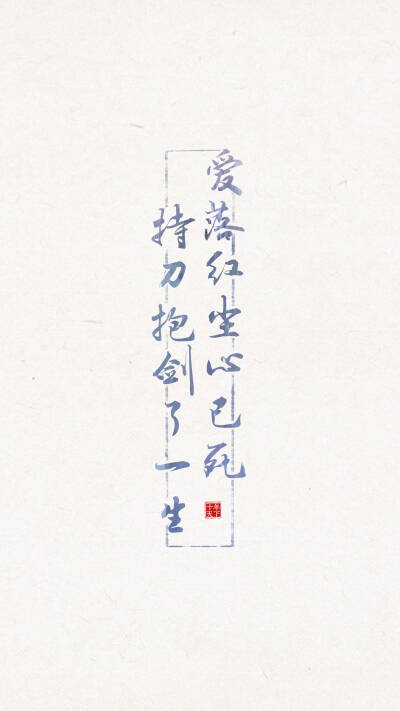 爱落红尘心已死
持刀抱剑了一生